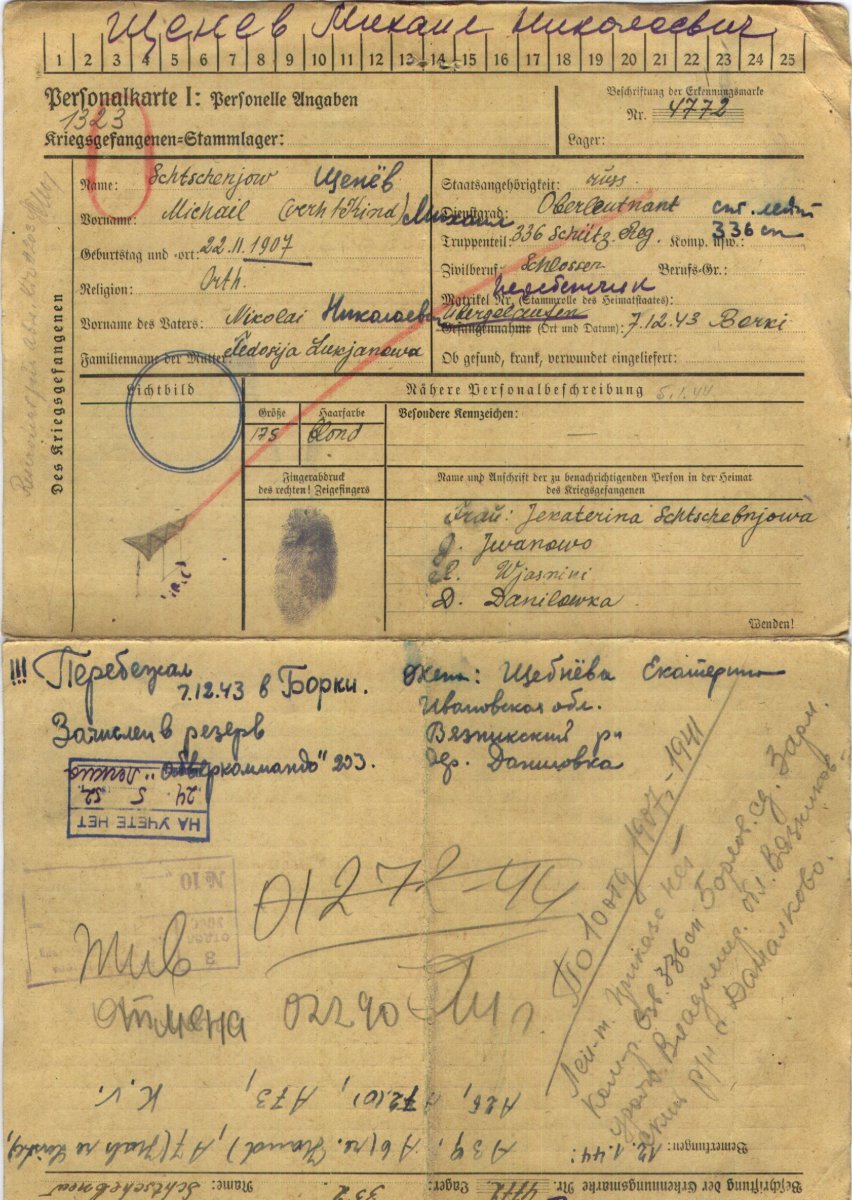 Щенев Михаил Николаевич
1 2 3 4 5 6 7 8 9 10 11 12 13 14 15 16 17 18 19 20 21 22 23 24 25
Personalkarte I: Personelle Angaben
1323
Kriegsgefangenen-Stammlager:
Beschriftung der Erkennungsmarke
Nr. 4772
Lager:
Des Kriegsgefangenen
Name: Schtschenjow Щенёв
Vorname: Michail Михаил
Geburtstag und -ort: 22.11.1907
Religion: Orth.
Vorname des Vaters: Nikolai
Familienname der Mutter: Fedosija Lukjanowa
Staatsangehörigkeit: russ
Dienstgrad: Oberleutnant
Truppenteil: 336 Schütz. Reg. Komp. usw.: 336 сп
Zivilberuf: Schlosser Berufs-Gr.:
перебежчик
Matrikel Nr. (Stammrolle des Heimatstaates):
Übergelaufen
Gefangennahme (Ort und Datum): 7.12.43 Borki
Ob gesund, krank, verwundet eingeliefert:
Lichtbild
Nähere Personalbeschreibung 5.1.44
Größe Haarfarbe Besondere Kennzeichen:
175 blond —
Fingerabdruck
des rechten! Zeigefingers
Name und Anschrift der zu benachrichtigenden Person in der Heimat
des Kriegsgefangenen
Frau: Jekaterina Schtschebnjowa
Jwanowo
Wjasnini
D. Danilowka
Wenden!
!!! Перебежал
7.12.43 в Борки.
Зачислен в резерв
"Абверкоммандо" 203.
Жена: Щебнёва Екатерина
Ивановская обл.
Вязникский р-н
дер. Даниловка
24 5 52
НА УЧЕТЕ НЕТ
№ 10
3
жив
отмена 02290
По 10 отд 1907-1941
Лей-т. Приказа нет
Комир. взв. 336 сп
Владимир. обл. Вязников-
ский р/н с.
A26, A73, K.v.
Bemerkungen: 12.1.44: A39.
Beschriftung der Erkennungsmarke Nr. 4772 Lager: 332 Name: Schtschebnew